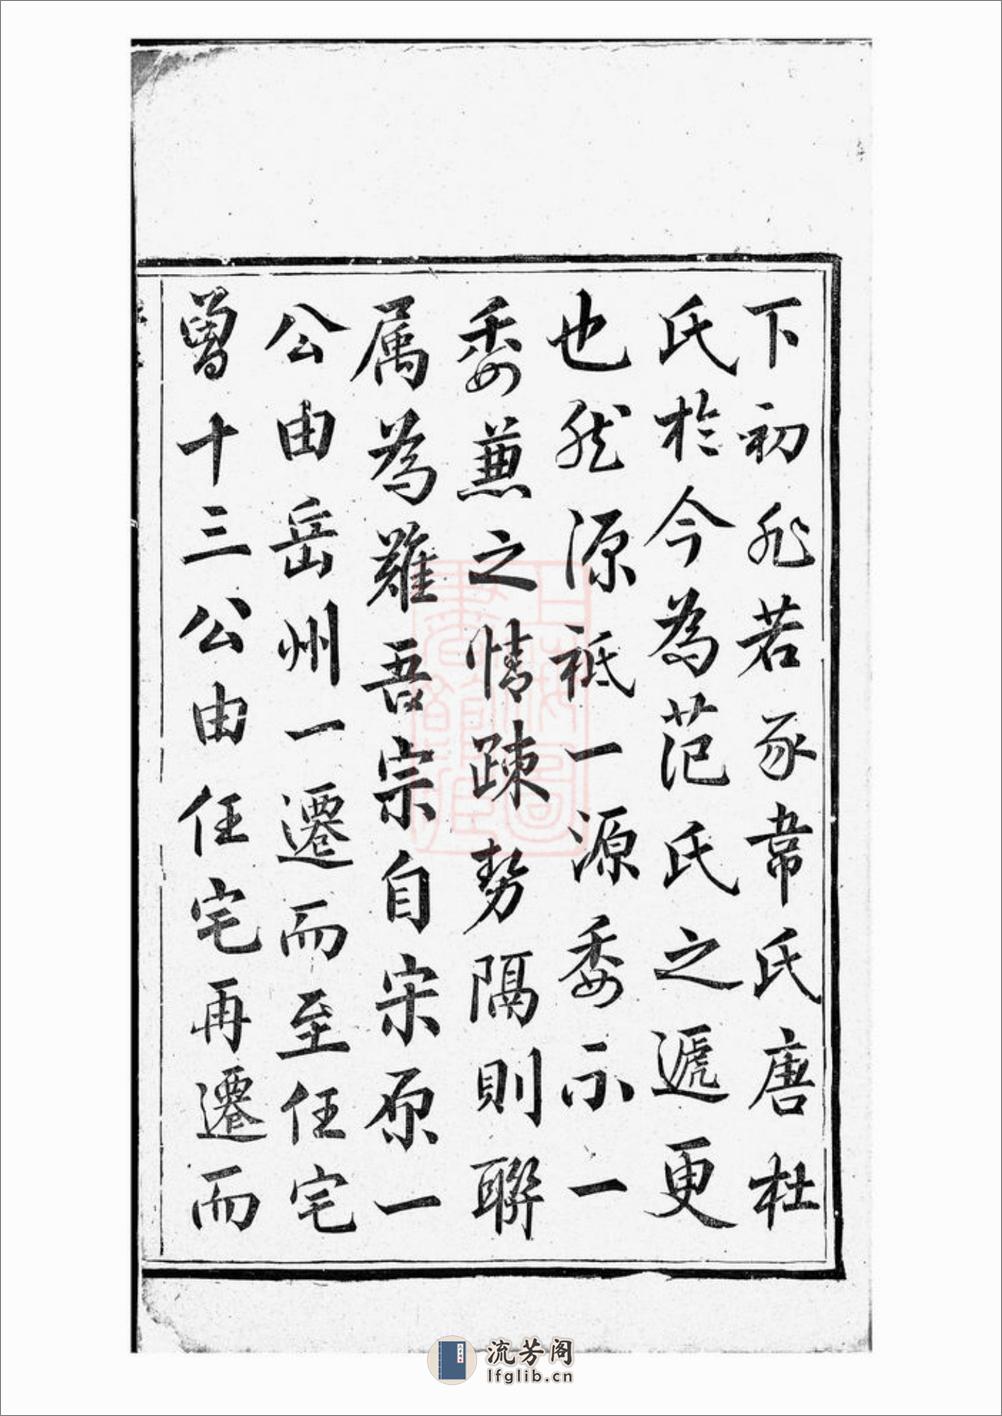 下初非若豕韋氏唐杜
氏於今為范氏之遞更
也然源祗一源委不一
委兼之情疎势隔則聯
属為難吾宗自宋原一
公由岳州一遷而至任宅
曾十三公由任宅再遷而
上海圖書館藏
流芳阁
lfglib.cn